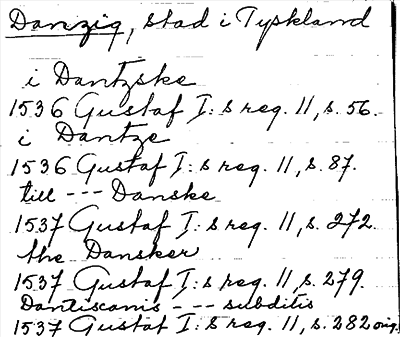 Danzig, stad i Tyskland
i Dantzske
1536 Gustaf I:s reg. 11, s. 56.
i Dantze
1536 Gustaf I:s reg. 11, s. 87.
till --- Danske
1537 Gustaf I:s reg. 11, s. 272
the Dansker
1537 Gustaf I:s reg. 11, s. 279.
Dantiscanis --- subditis
1537 Gustaf I:s reg. 11, s. 282 orig.